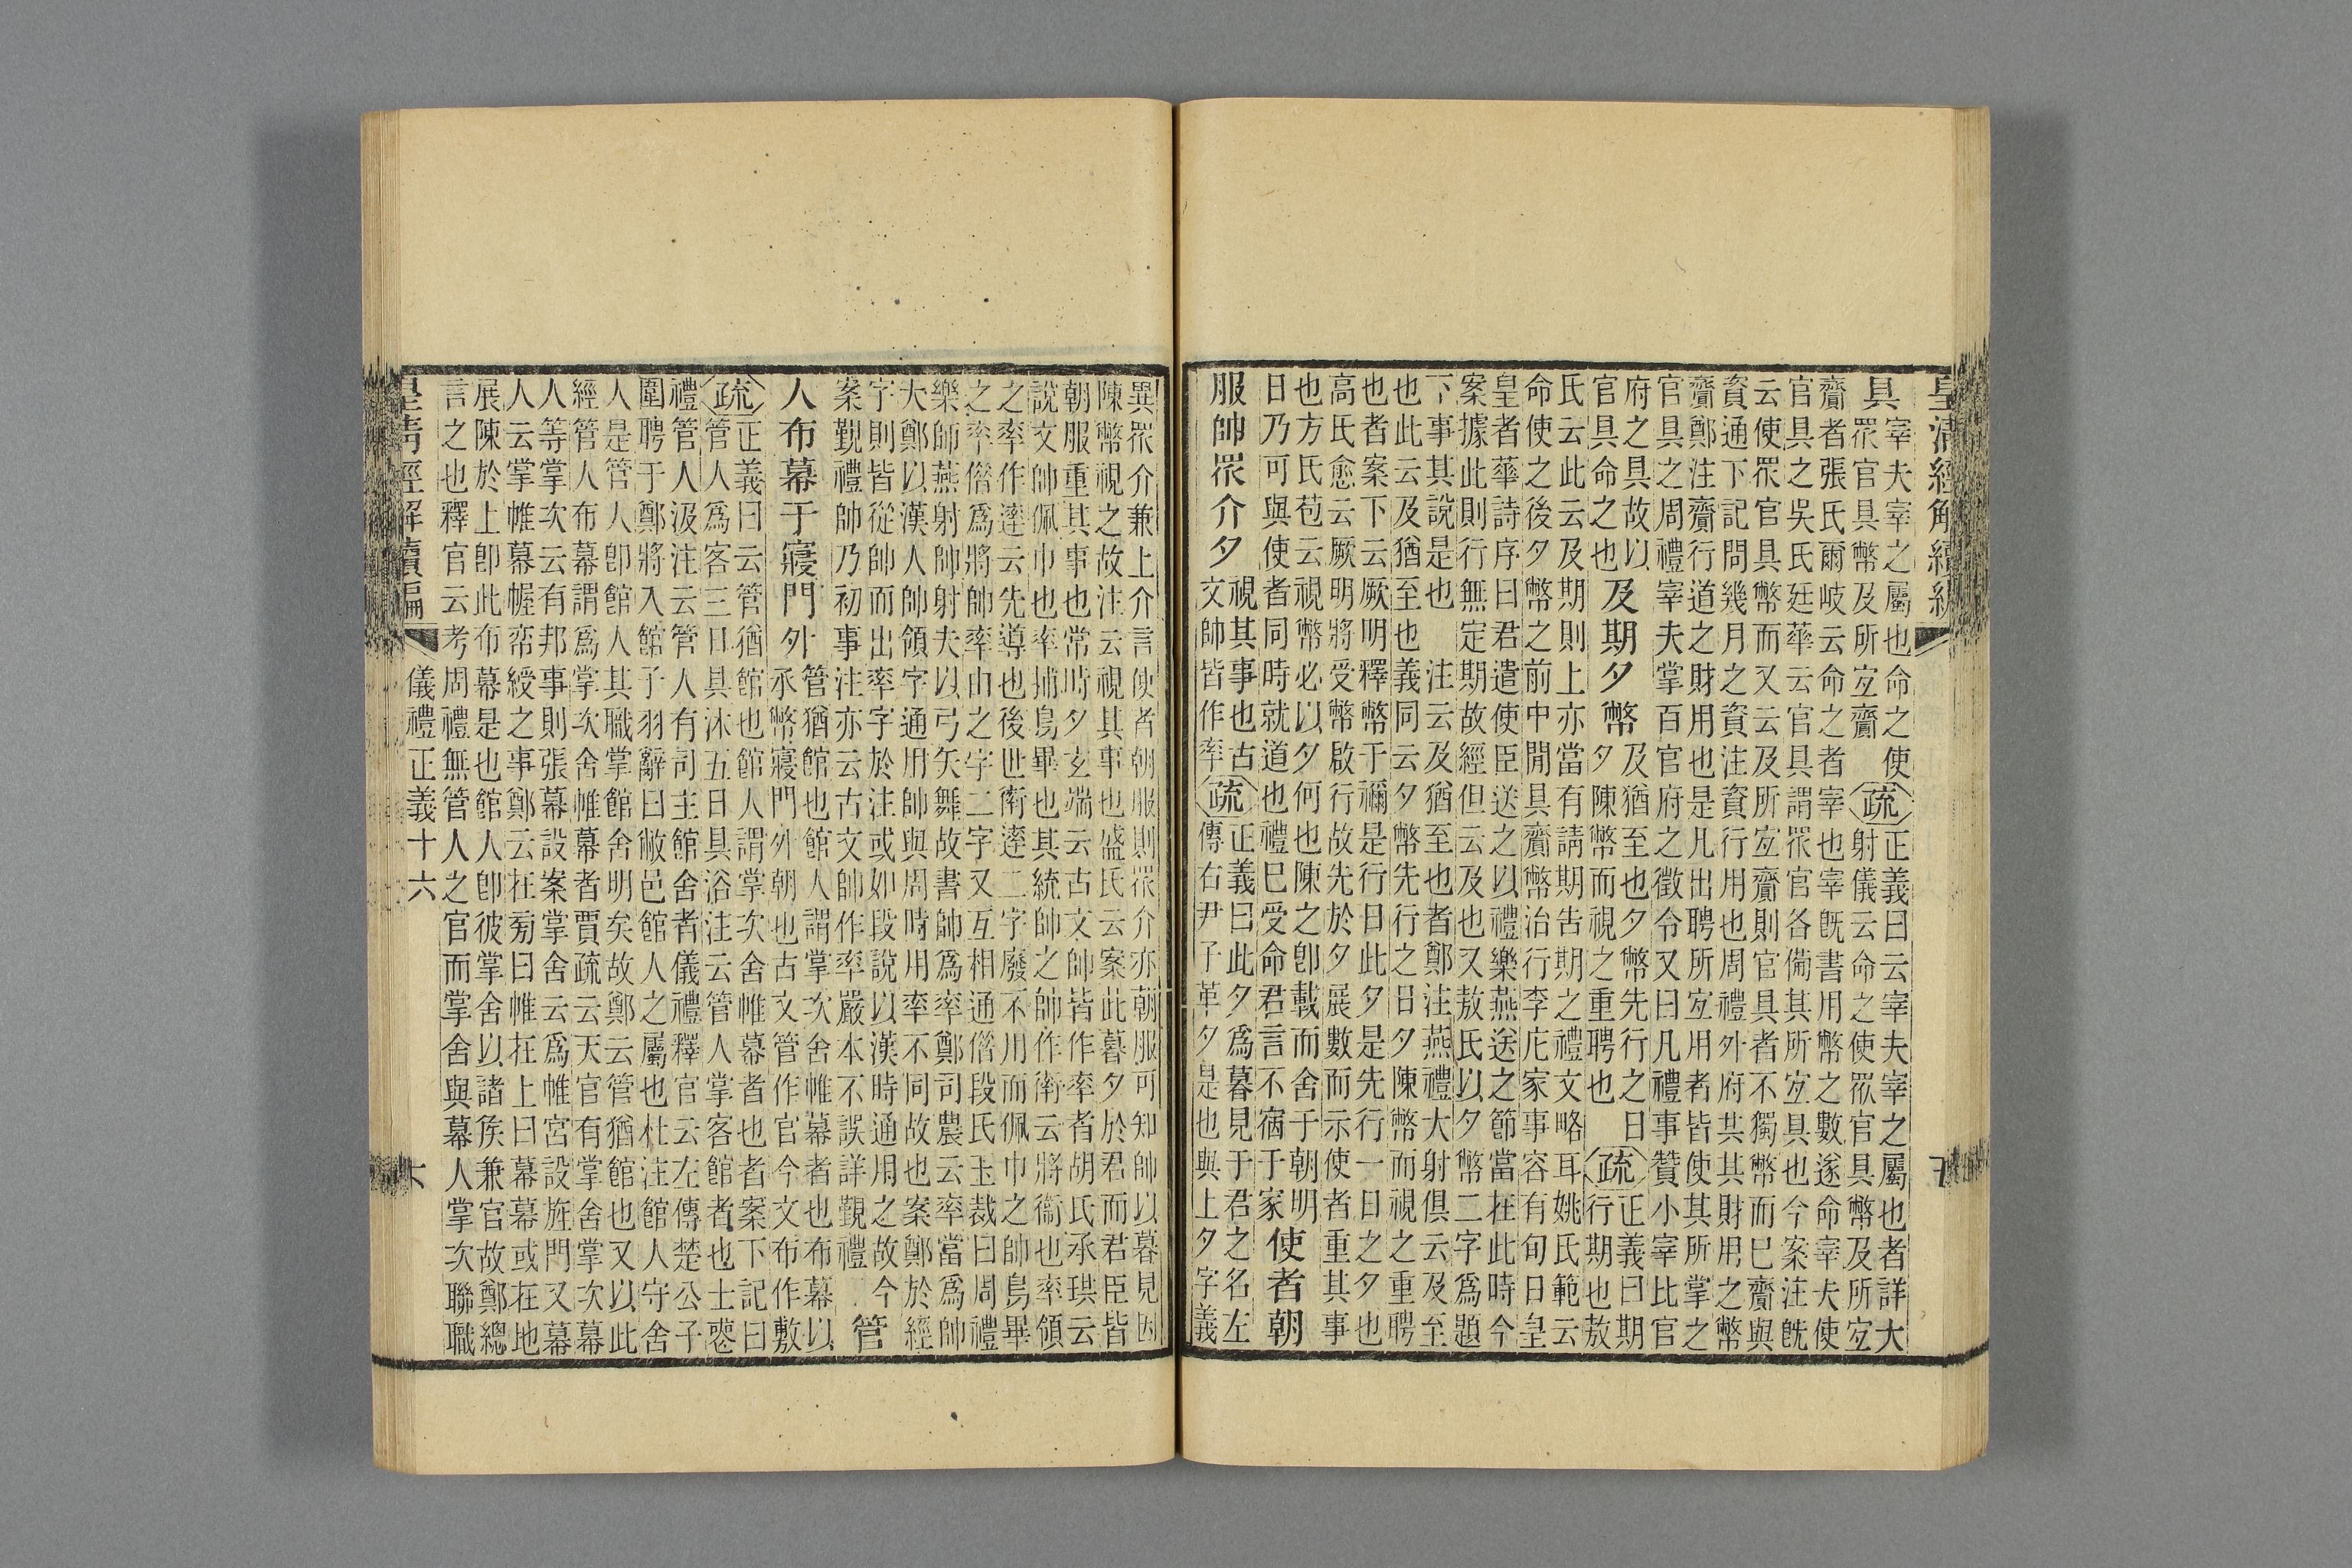 皇清經解續編
具
宰夫宰之屬也命之使
眾官具幣及所宐齎
疏
正義曰云宰夫宰之屬也者詳大
射儀云命之使眾官具幣及所宐
齎者張氏爾岐云命之者宰也宰旣書用幣之數遂命宰夫使
官具之吳氏廷華云官具謂眾官各備其所宐具也今案注旣
云使眾官具幣而又云及所宐齎則官具者不獨幣而巳齎與
資通下記問幾月之資注資行用也周禮外府共其財用之幣
齎鄭注齎行道之財用也是凡出聘所宐用者皆使其所掌之
官具之周禮宰夫掌百官府之徵令又曰凡禮事贊小宰比官
府之具故以
官具命之也
及期夕幣
及猶至也夕幣先行之日
夕陳幣而視之重聘也
疏
正義曰期
行期也敖
氏云此云及期則上亦當有請期告期之禮文略耳姚氏範云
命使之後夕幣之前中閒具齎幣治行李庀家事容有旬日皇
皇者華詩序曰君遣使臣送之以禮樂燕送之節當在此時今
案據此則行無定期故經但云及也又敖氏以夕幣二字爲題
下事其說是也　注云及猶至也者鄭注燕禮大射俱云及至
也此云及猶至也義同云夕幣先行之日夕陳幣而視之重聘
也者案下云厥明釋幣于禰是行日此夕是先行一日之夕也
高氏愈云厥明將受幣啟行故先於夕展數而示使者重其事
也方氏苞云視幣必以夕何也陳之卽載而舍于朝明
日乃可與使者同時就道也禮巳受命君言不宿于家
使者朝
服帥眾介夕
視其事也古
文帥皆作率
疏
正義曰此夕爲暮見于君之名左
傳右尹子革夕是也與上夕字義
異眾介兼上介言使者朝服則眾介亦朝服可知帥以暮見因
陳幣視之故注云視其事也盛氏云案此暮夕於君而君臣皆
朝服重其事也常時夕玄端云古文帥皆作率者胡氏承珙云
說文帥佩巾也率捕鳥畢也其統帥之帥作衛云將衛也率領
之率作𨘷云先導也後世衛𨘷二字廢不用而佩巾之帥鳥畢
之率僭爲將帥率由之字二字又互相通僭段氏玉裁曰周禮
樂師燕射帥射夫以弓矢舞故書帥爲率鄭司農云率當爲帥
大鄭以漢人帥領字通用帥與周時用率不同故也案鄭於經
字則皆從帥而出率字於注或如段說以漢時通用之故今
案覲禮帥乃初事注亦云古文帥作率嚴本不誤詳覲禮
管
人布幕于寢門外
管猶館也館人謂掌次舍帷幕者也布幕以
承幣寢門外朝也古文管作官今文布作敷
疏
正義曰云管猶館也館人謂掌次舍帷幕者也者案下記曰
管人爲客三日具沐五日具浴注云管人掌客館者也士喪
禮管人汲注云管人有司主館舍者儀禮釋官云左傳楚公子
圍聘于鄭將入館子羽辭曰敝邑館人之屬也杜注館人守舍
人是管人卽館人其職掌館舍明矣故鄭云管猶館也又以此
經管人布幕謂爲掌次舍帷幕者賈疏云天官有掌舍掌次幕
人等掌次云有邦事則張幕設案掌舍云爲帷宮設旌門又幕
人云掌帷幕幄帟綬之事鄭云在旁曰帷在上曰幕幕或在地
展陳於上卽此布幕是也館人卽彼掌舍以諸侯兼官故鄭總
言之也釋官云考周禮無管人之官而掌舍與幕人掌次聯職
皇清經解續編
儀禮正義十六
六